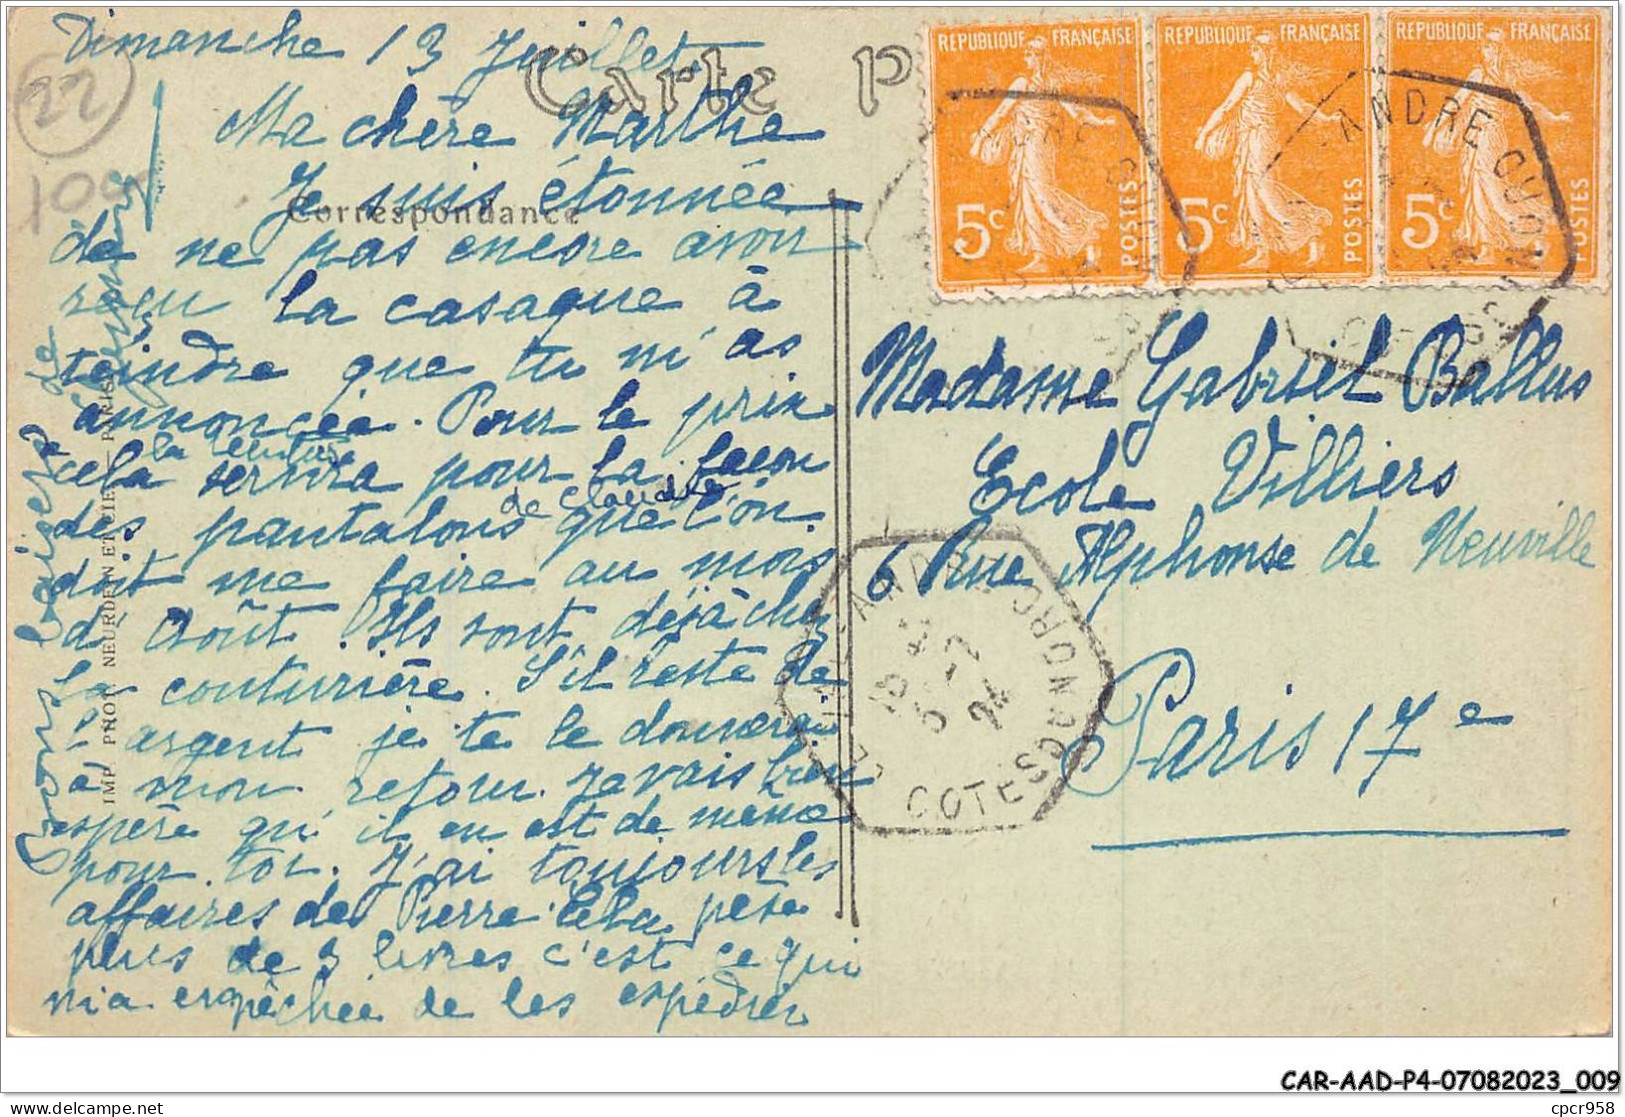 Dimanche 13 Juillet
Carte P
22
100
Ma chère Marthe
Je suis étonnée
Correspondance
de ne pas encore avoir
reçu la casaque à
teindre que tu m'as
annoncée. Pour le prix
la teinture
cela servira pour la façon
de Claude
des pantalons que l'on
doit me faire au mois
d'Août. Ils sont déjà chez
la couturière. S'il reste de
l'argent je te le donnerai
à mon retour. Je vais bien
espère qu'il en est de même
pour toi. J'ai toujours les
affaires de Pierre. Cela pèse
plus de 3 livres c'est ce qui
m'a empêchée de les expédier
Bons baisers de
Germaine
IMP PHOT NEURDEIN ET CIE — PARIS
REPUBLIQUE FRANÇAISE
5c POSTES
REPUBLIQUE FRANÇAISE
5c POSTES
REPUBLIQUE FRANÇAISE
5c POSTES
ANDRE
COTES DU NORD
Madame Gabriel Ballus
Ecole Villiers
6 Rue Alphonse de Neuville
Paris 17e
CAR-AAD-P4-07082023_009
cpcr958